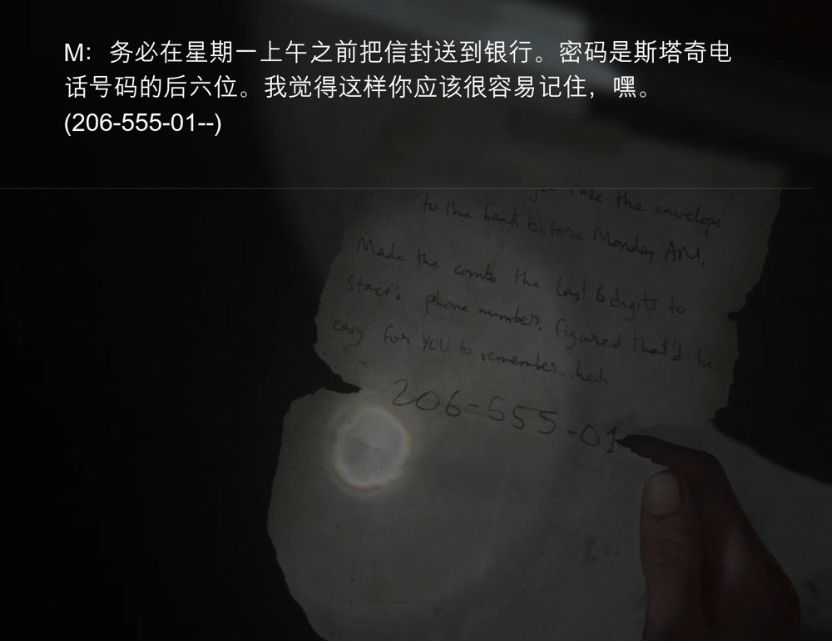 M：务必在星期一上午之前把信封送到银行。密码是斯塔奇电
话号码的后六位。我觉得这样你应该很容易记住，嘿。
(206-555-01--)
the envelope
to the bank before Monday AM.
Made the combo the last 6 digits to
Staci's phone number. figured that'd be
easy for YOU to remember...heh
206-555-01